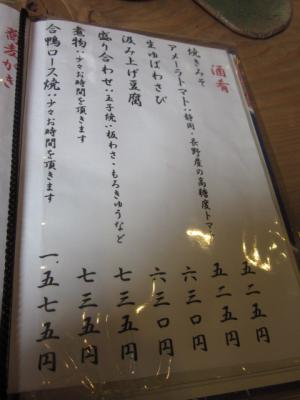 酒肴
焼きみそ 五二五円
アメーラトマト:静岡・長野産の高糖度トマト 五二五円
生ゆばわさび 六三〇円
汲み上げ豆腐 六三〇円
盛り合わせ:玉子焼・板わさ・もろきゅうなど 七三五円
煮物:少々お時間を頂きます 七三五円
合鴨ロース焼:少々お時間を頂きます 一、五七五円
蕎麦がき